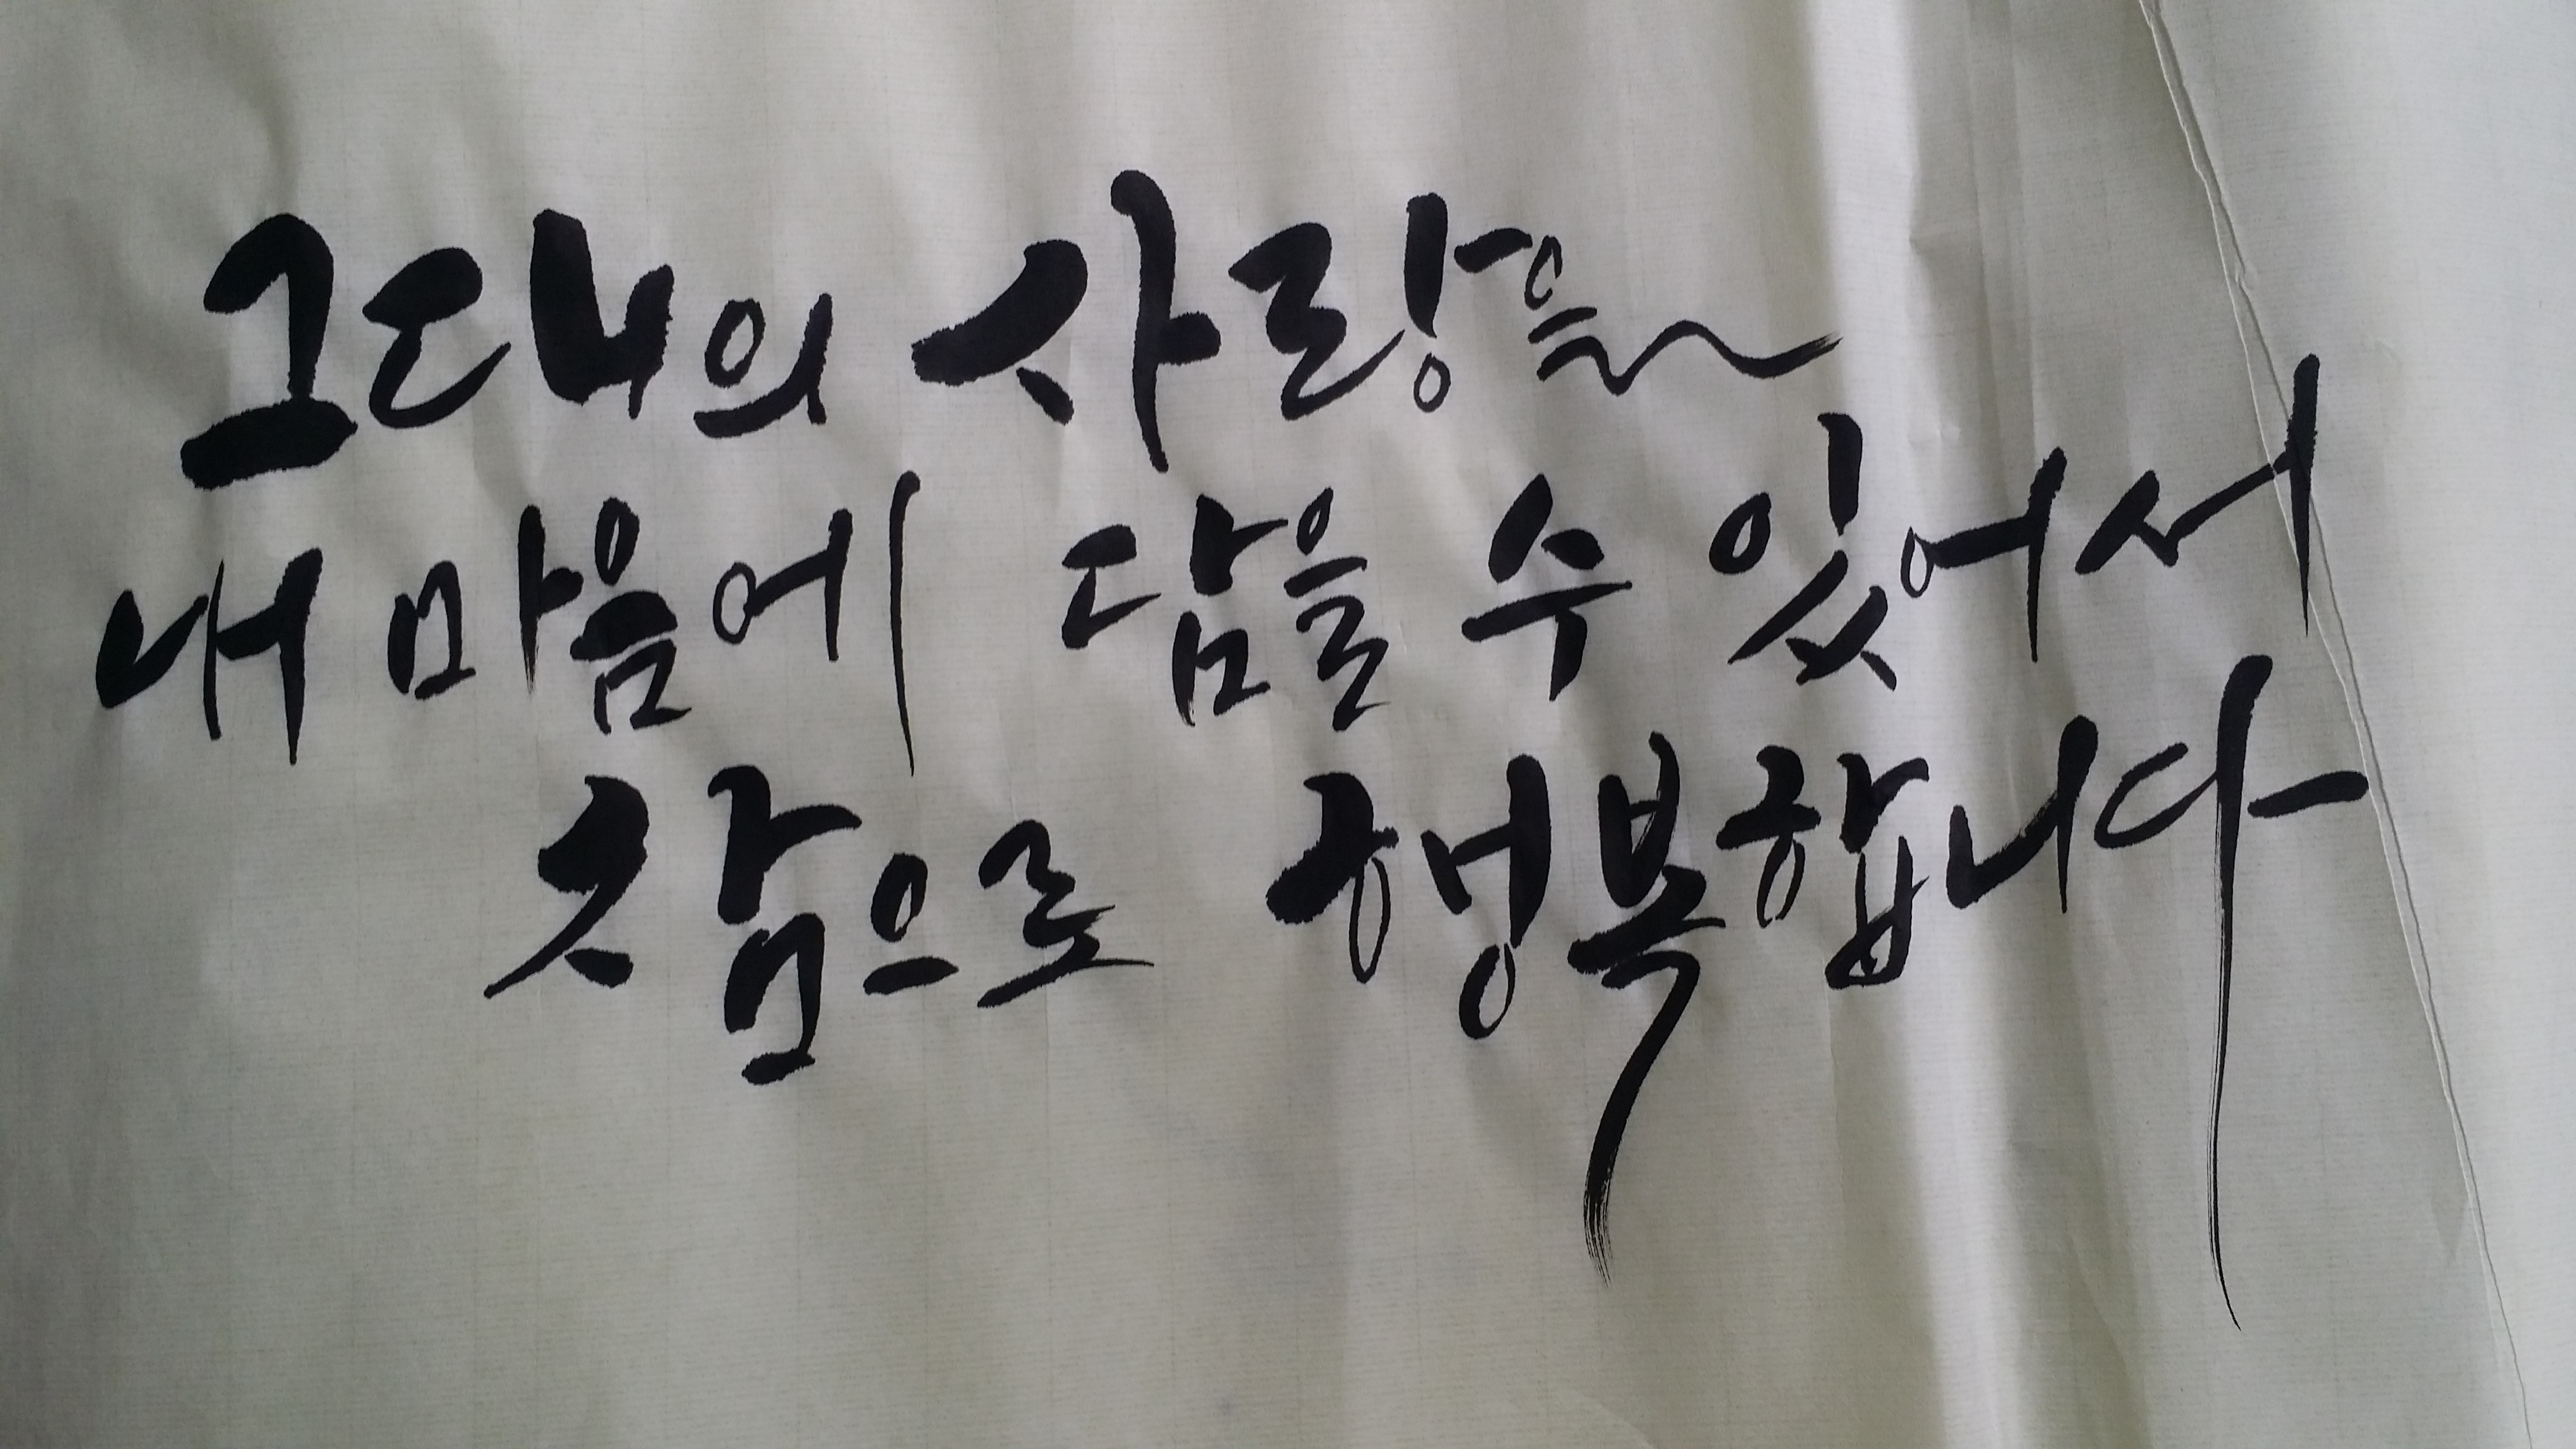 그대의 사랑을
내 마음에 담을 수 있어서
참으로 행복합니다